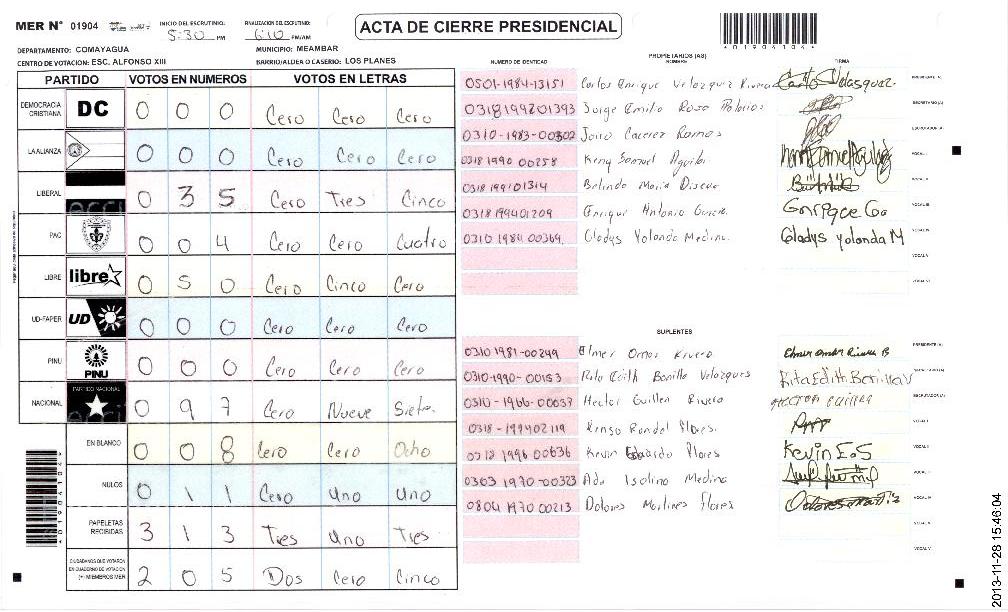 MER N° 01904 INICIO DEL ESCRUTINIO: 5:30 PM FINALIZACION DEL ESCRUTINIO: 6:10 PM/AM
ACTA DE CIERRE PRESIDENCIAL
01904104
DEPARTAMENTO: COMAYAGUA MUNICIPIO: MEAMBAR
CENTRO DE VOTACION: ESC. ALFONSO XIII BARRIO/ALDEA O CASERIO: LOS PLANES
PARTIDO VOTOS EN NUMEROS VOTOS EN LETRAS
DEMOCRACIA CRISTIANA DC 0 0 0 Cero Cero Cero
LA ALIANZA 0 0 0 Cero Cero Cero
LIBERAL 0 3 5 Cero Tres Cinco
PAC 0 0 4 Cero Cero Cuatro
LIBRE libre 0 5 0 Cero Cinco Cero
UD-FAPER UD 0 0 0 Cero Cero Cero
PINU PINU 0 0 0 Cero Cero Cero
NACIONAL PARTIDO NACIONAL 0 9 7 Cero Nueve Siete
EN BLANCO 0 0 8 Cero Cero Ocho
NULOS 0 1 1 Cero Uno Uno
PAPELETAS RECIBIDAS 3 1 3 Tres Uno Tres
CIUDADANOS QUE VOTARON EN CUADERNO DE VOTACION (+) MIEMBROS MER 2 0 5 Dos Cero Cinco
PROPIETARIOS (AS)
NUMERO DE IDENTIDAD NOMBRE FIRMA
0501-1984-13151 Carlos Enrique Velazquez Rivera Carlo Velasquez PRESIDENTE (A)
0318199201393 Jorge Emilio Rosa SECRETARIO (A)
0310-1983-00302 Jairo Caceres Ramos ESCRUTADOR (A)
0318 1990 00258 Keny Samuel Aguilar VOCAL I
0318 199101314 Belinda Maria Discua VOCAL II
0318 199401209 Enrique Antonio Garcia VOCAL III
0310 1984 00369 Gladys Yolanda Medina Gladys Yolanda M VOCAL IV
VOCAL V
VOCAL VI
SUPLENTES
0310 1981-00249 Elmer Omar Rivera Elmer Omar Rivera B PRESIDENTE (A)
0310-1990-00153 Rita Edith Bonilla Velazques Rita Edith Bonilla V SECRETARIO (A)
0310-1966-00037 Hector Guillen Rivera Hector Guillen ESCRUTADOR (A)
0318-199402119 Flores. VOCAL I
0318 1996 00636 Kevin Eduardo Flores Kevin E.S VOCAL II
0303 1970-00323 Ada Isolina Medina VOCAL III
0804 1970 00213 Dolores Martines Flores VOCAL IV
VOCAL V
VOCAL VI
2013-11-28 15:46:04